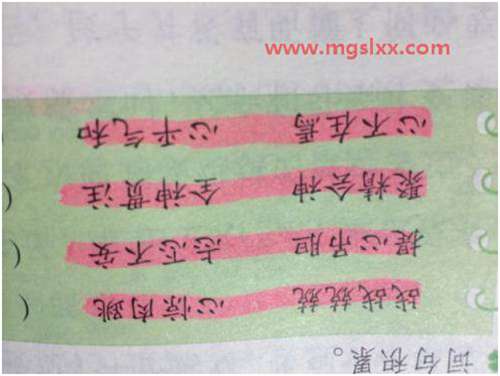 www.mgslxx.com
词句积累。
战战兢兢 心惊肉跳 (
提心吊胆 忐忑不安 (
聚精会神 全神贯注 (
心不在焉 心平气和 (